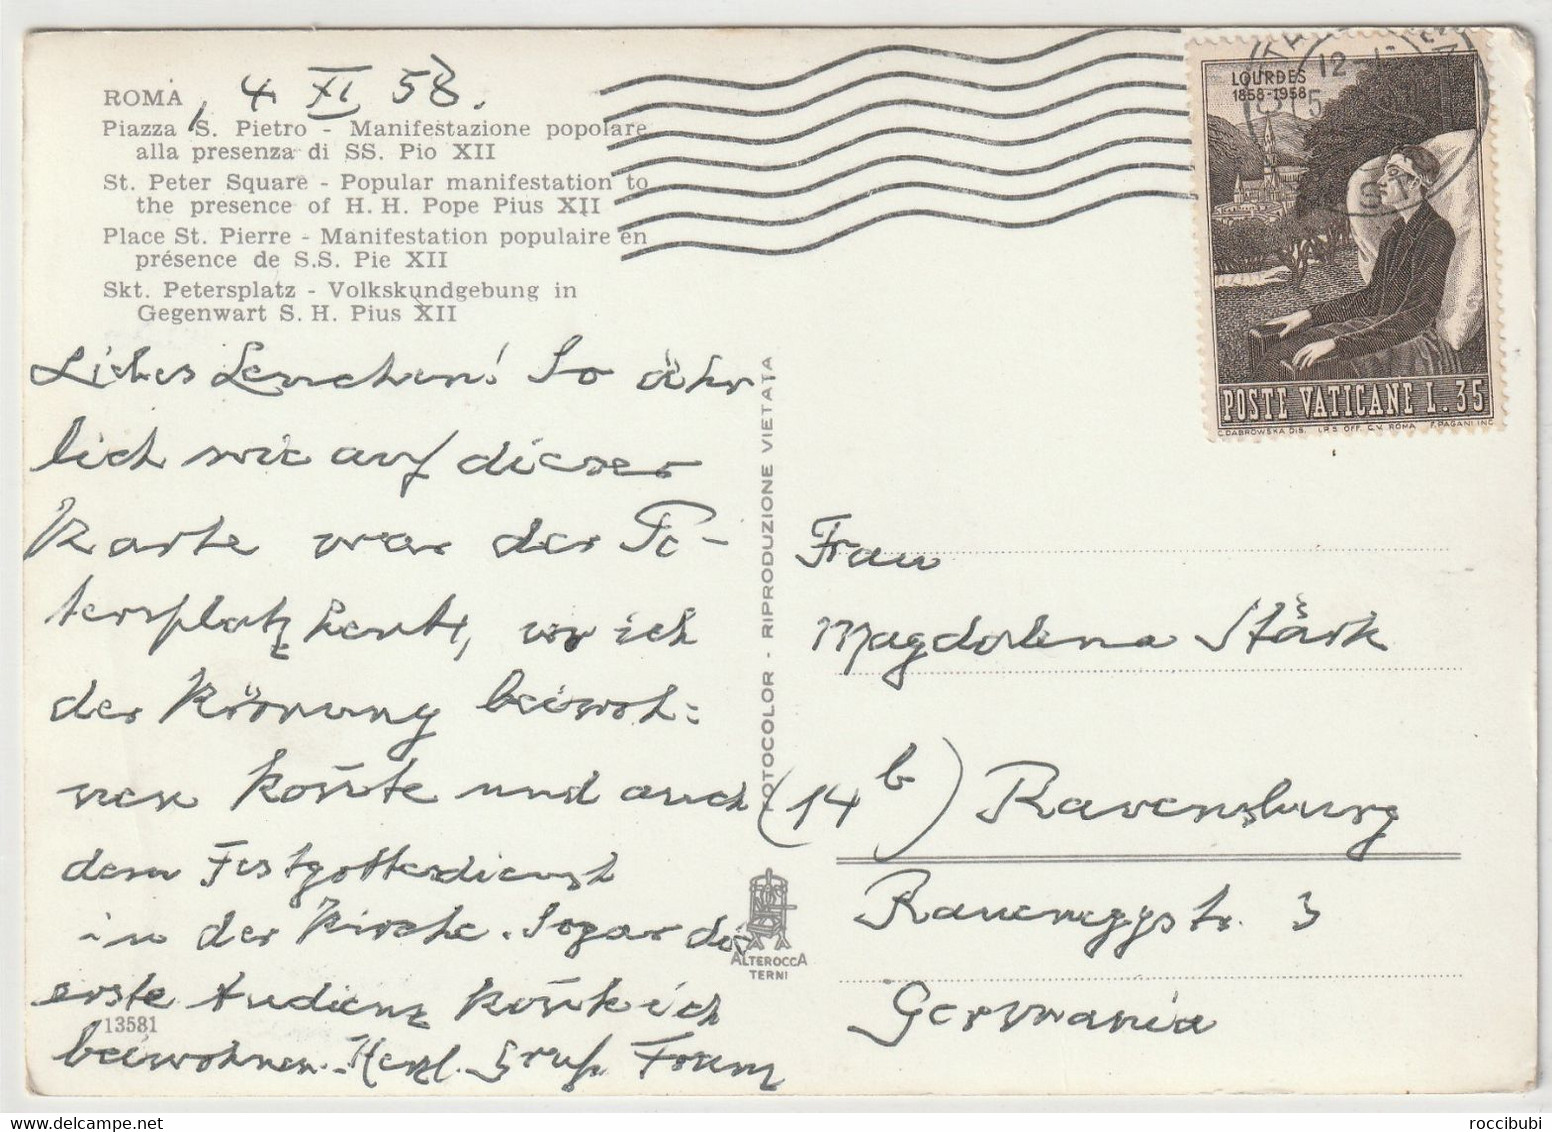 ROMA, 4. XI. 58.
Piazza S. Pietro - Manifestazione popolare
alla presenza di SS. Pio XII
St. Peter Square - Popular manifestation to
the presence of H. H. Pope Pius XII
Place St. Pierre - Manifestation populaire en
présence de S.S. Pie XII
Skt. Petersplatz - Volkskundgebung in
Gegenwart S. H. Pius XII
Liebes Lenchen! So ähn
lich wie auf dieser
Karte war der Pe-
tersplatz heute, wo ich
der Krönung beiwoh=
nen konnte und auch
dem Festgottesdienst
in der Kirche. Sogar die
erste Audienz konnte ich
beiwohnen. Herzl. Gruß
13581
FOTOCOLOR - RIPRODUZIONE VIETATA
ALTEROCCA
TERNI
LOURDES
1858-1958
POSTE VATICANE L. 35
C. DABROWSKA DIS. I.P.S. OFF. C.V. ROMA F. PAGANI INC.
Frau
Magdalena Stärk
(14 b) Ravensburg
Raueneggstr. 3
Germania
roccibubi